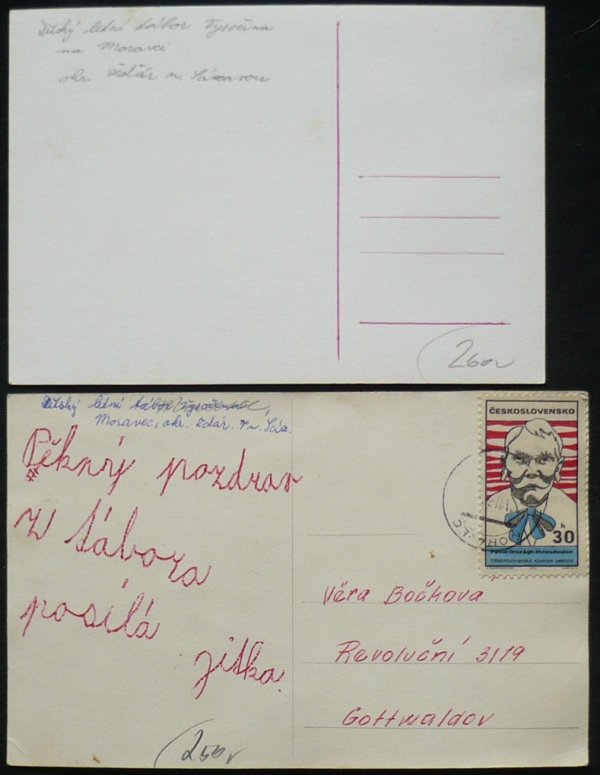 Dětský letní tábor Vysočina
na Moravci
okr Žďár n. Sázavou
260,-
Dětský letní tábor
Moravec, okr. Žďár. n. Sáz.
Pěkný pozdrav
z tábora
posílá
Jitka.
ČESKOSLOVENSKO
30 h
Pavol Országh Hviezdoslav
Věra Bočkova
Revoluční 3119
Gottwaldov